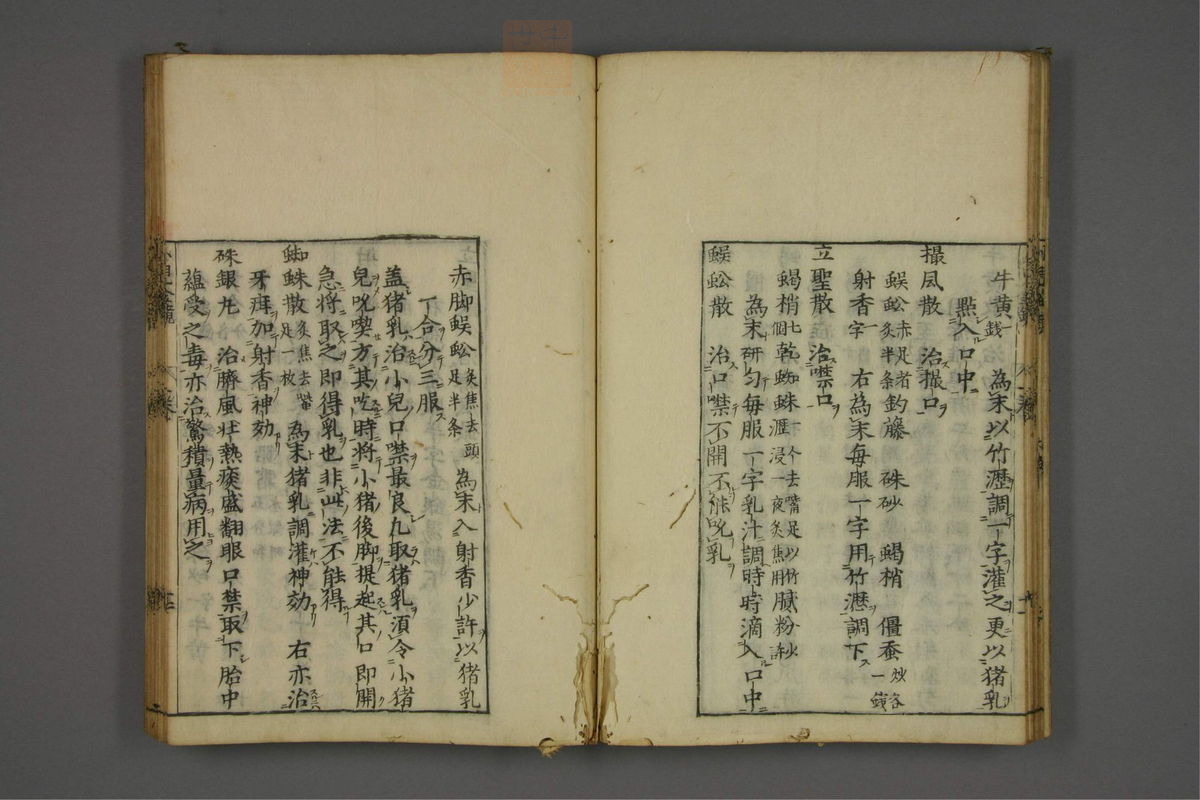 牛黄錢 為末以竹瀝調一字灌之更以猪乳
點入口中
撮風散 治撮口
蜈蚣赤足者炙半条 鈎藤 硃砂 蝎梢 僵蚕炒各一錢
射香一字 右為末毎服一字用竹瀝調下
立聖散 治噤口
蝎梢七個 乾蜘蛛一个去嘴足以竹瀝浸一夜炙焦用 膩粉少許
為末研匀毎服一字乳汁調時時滴入口中
蜈蚣散 治口噤不開不能吮乳
赤脚蜈蚣炙焦去頭足半条 為末入射香少許以猪乳
一合分三服
盖猪乳治小兒口噤最良凡取猪乳須令小猪
兒吮喫方其吃時将小猪後脚提起其口即開
急将取之即得乳也非此法不能得
蜘蛛散炙焦去嘴足一枚 為末猪乳調灌神効 右亦治
牙疳加射香神効
硃銀丸 治臍風壮熱痰盛翻眼口禁取下胎中
蘊受之毒亦治驚積量病用之